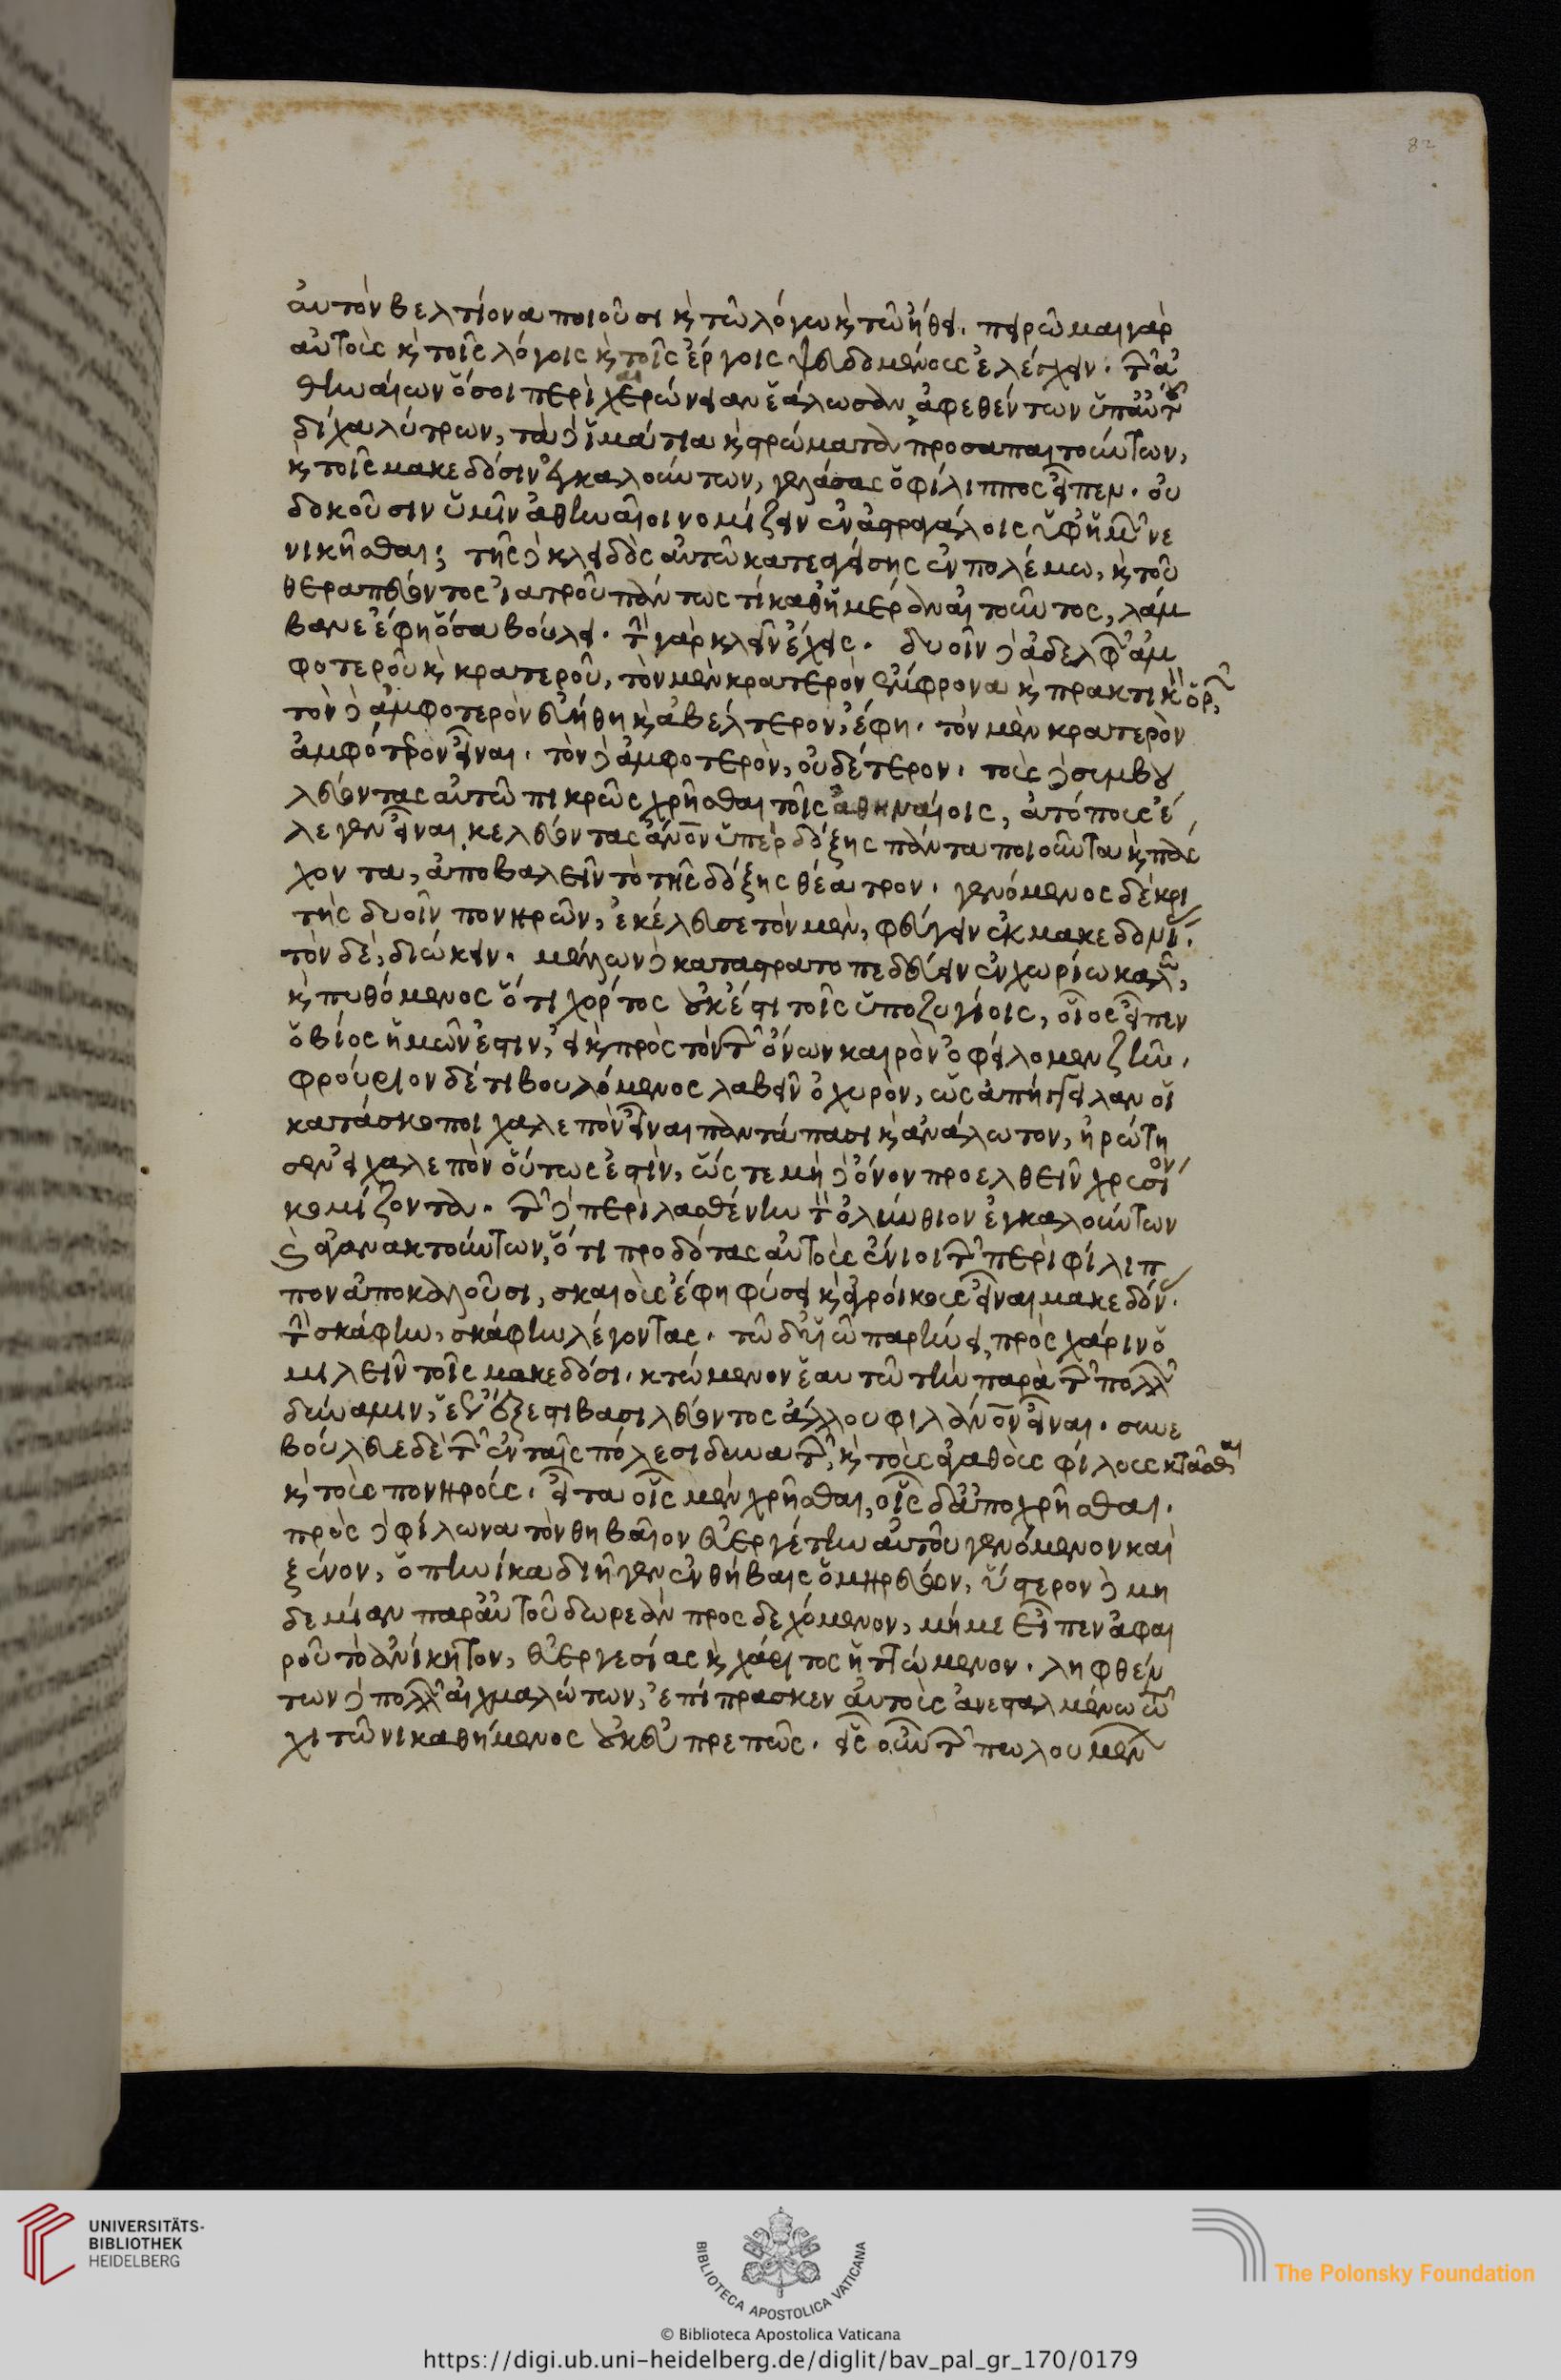 82
αὐτὸν βελτίονα ποιοῦσι κ̀ τῶ λόγω κ̀ τῶ ἤθει. πειρῶμαι γὰρ
αὐτοὺς κ̀ τοῖς λόγοις κ̀ τοῖς ἔργοις ψευδομένους ἐλέγχειν. τῶν ἀ
θηναίων ὅσοι περὶ χερώνειαν ἑάλωσαν ἀφεθέντων ὑπ' αὐτοῦ
δίχα λύτρων, τὰ δὲ ἱμάτια κ̀ στρώματα προσαπαιτούντων,
κ̀ τοῖς μακεδόσιν ἐγκαλούντων, γελάσας ὁ φίλιππος εἶπεν. οὐ
δοκοῦσιν ὑμῖν ἀθηναῖοι νομίζειν ἐν ἀστραγάλοις ὑφ' ἡμῶν νε
νικῆσθαι; τῆς δὲ κλειδὸς αὐτῶ κατεαγείσης ἐν πολέμω, κ̀ τοῦ
θεραπεύοντος ἰατροῦ πάντως τι καθ' ἡμέραν αἰτοῦντος, λάμ
βανε ἔφη ὅσα βούλει. τὴν γὰρ κλεῖν ἔχεις. δυοῖν δὲ ἀδελφῶν ἀμ
φοτεροῦ κ̀ κρατεροῦ, τὸν μὲν κρατερὸν ἔμφρονα κ̀ πρακτικὸν ὁρῶν,
τὸν δὲ ἀμφοτερὸν εὐήθη κ̀ ἀβέλτερον, ἔφη. τὸν μὲν κρατερὸν
ἀμφότερον εἶναι. τὸν δὲ ἀμφοτερὸν, οὐδέτερον. τοὺς δὲ συμβου
λεύοντας αὐτῶ πικρῶς χρῆσθαι τοῖς ἀθηναίοις, ἀτόπους ἔ
λεγεν εἶναι κελεύοντας ἄνον ὑπὲρ δόξης πάντα ποιοῦντα κ̀ πάς
χοντα, ἀποβαλεῖν τὸ τῆς δόξης θέατρον. γενόμενος δὲ κρι
τὴς δυοῖν πονηρῶν, ἐκέλευσε τὸν μὲν, φεύγειν ἐκ μακεδονίας.
τὸν δὲ, διώκειν. μέλλων δὲ καταστρατοπεδεύειν ἐν χωρίω καλῶ,
κ̀ πυθόμενος ὅτι χόρτος οὐκ ἔστι τοῖς ὑποζυγίοις, οἷος εἶπεν
ὁ βίος ἡμῶν ἐστιν, εἰ κ̀ πρὸς τὸν τῶν ὄνων καιρὸν ὀφείλομεν ζῆν.
φρούριον δέ τι βουλόμενος λαβεῖν ὀχυρὸν, ὡς ἀπήγγειλαν οἱ
κατάσκοποι χαλεπὸν εἶναι παντάπασι κ̀ ἀνάλωτον, ἠρώτη
σεν εἰ χαλεπὸν οὕτως ἐστὶν, ὥστε μὴ δὲ ὄνον προελθεῖν χρυσίον
κομίζοντα. τῶν δὲ περὶ λασθένην τὸν ὀλύνθιον ἐγκαλούντων
κ̀ ἀγανακτούντων, ὅτι προδότας αὐτοὺς ἔνιοι τῶν περὶ φίλιπ
πον ἀποκαλοῦσι, σκαιοὺς ἔφη φύσει κ̀ ἀγροίκους εἶναι μακεδόνας.
τὴν σκάφην, σκάφην λέγοντας. τῶ δ' ὑιῶ παρήνει, πρὸς χάριν ὁ
μιλεῖν τοῖς μακεδόσι. κτώμενον ἑαυτῶ τὴν παρὰ τῶν πολλῶν
δύναμιν, ἕως ἔξεστι βασιλεύοντος ἄλλου φιλάνον εἶναι. συνε
βούλευε δὲ τῶν ἐν ταῖς πόλεσι δυνατῶν, κ̀ τοὺς ἀγαθοὺς φίλους κτᾶσθαι
κ̀ τοὺς πονηρούς. εἶτα οἷς μὲν χρῆσθαι, οἷς δ' ἀποχρῆσθαι.
πρὸς δὲ φίλωνα τὸν θηβαῖον εὐεργέτην αὐτοῦ γενόμενον καὶ
ξένον, ὁπηνίκα διῆγεν ἐν θήβαις ὁμηρεύων, ὕστερον δὲ μη
δεμίαν παρ' αὐτοῦ δωρεὰν προσδεχόμενον, μή με εἶπεν ἀφαι
ροῦ τὸ ἀνίκητον, εὐεργεσίας κ̀ χάριτος ἡττώμενον. ληφθέν
των δὲ πολλῶν αἰχμαλώτων, ἐπίπρασκεν αὐτοὺς ἀνεσταλμένω τῶ
χιτῶνι καθήμενος οὐκ εὐπρεπῶς. εἷς οὖν τῶν πωλουμένων
UNIVERSITÄTS-
BIBLIOTHEK
HEIDELBERG
BIBLIOTECA APOSTOLICA VATICANA
The Polonsky Foundation
© Biblioteca Apostolica Vaticana
https://digi.ub.uni-heidelberg.de/diglit/bav_pal_gr_170/0179